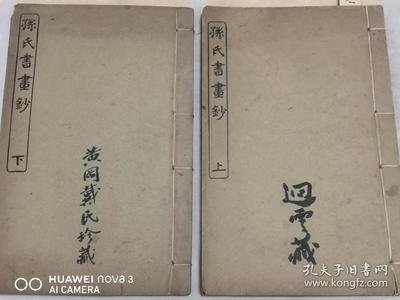 孫氏書畫鈔
上
迴雲藏
孫氏書畫鈔
下
黄岡戴氏珍藏
HUAWEI nova 3
AI CAMERA
孔夫子旧书网
kongfz.com